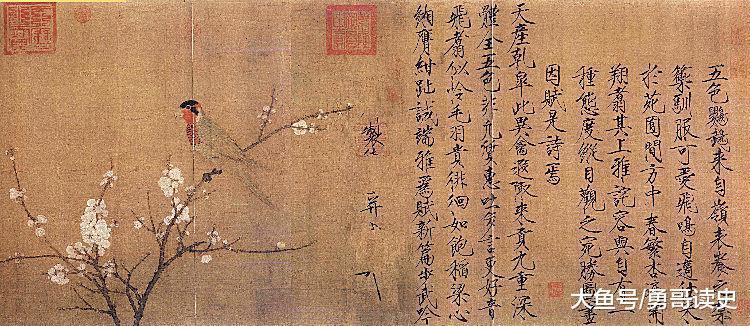 五色鸚鵡來自嶺表養之禁
籞馴服可愛飛鳴自適往來
於苑囿間方中春繁杏遍開
翔翥其上雅詫容與自有一
種態度縱目觀之宛勝圖畫
因賦是詩焉
天產乾皋此異禽遐陬來貢九重深
體全五色非凡質惠吐多言更好音
飛翥似憐毛羽貴徘徊如飽稻粱心
緗膺紺趾誠端雅為賦新篇步武吟
製
并書
大鱼号/勇哥读史